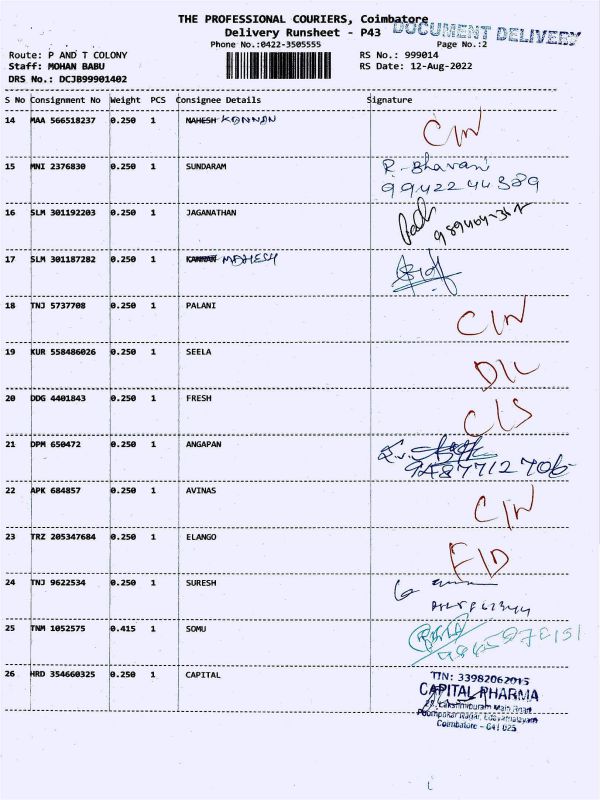 THE PROFESSIONAL COURIERS, Coimbatore
DOCUMENT DELIVERY
Delivery Runsheet - P43
Phone No.:0422-3505555 Page No.:2
Route: P AND T COLONY RS No.: 999014
Staff: MOHAN BABU RS Date: 12-Aug-2022
DRS No.: DCJB99901402
S No Consignment No Weight PCS Consignee Details Signature
14 MAA 566518237 0.250 1 MAHESH KANNAN C/N
15 MNI 2376830 0.250 1 SUNDARAM R-Bhavani
9942244389
16 SLM 301192203 0.250 1 JAGANATHAN
17 SLM 301187282 0.250 1 KANNAN MAHESH
18 TNJ 5737708 0.250 1 PALANI C/N
19 KUR 558486026 0.250 1 SEELA D/L
20 DDG 4401843 0.250 1 FRESH C/S
21 DPM 650472 0.250 1 ANGAPAN
9487712706
22 APK 684857 0.250 1 AVINAS C/N
23 TRZ 205347684 0.250 1 ELANGO F/D
24 TNJ 9622534 0.250 1 SURESH
25 TNM 1052575 0.415 1 SOMU
26 HRD 354660325 0.250 1 CAPITAL TIN: 33982062015
CAPITAL PHARMA
Lakshmipuram Main Road
Coimbatore - 641 025